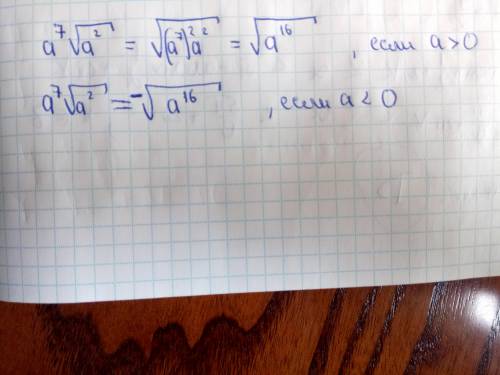 a⁷√a² = √(a⁷)²a² = √a¹⁶ , если a > 0
a⁷√a² = -√a¹⁶ , если a < 0